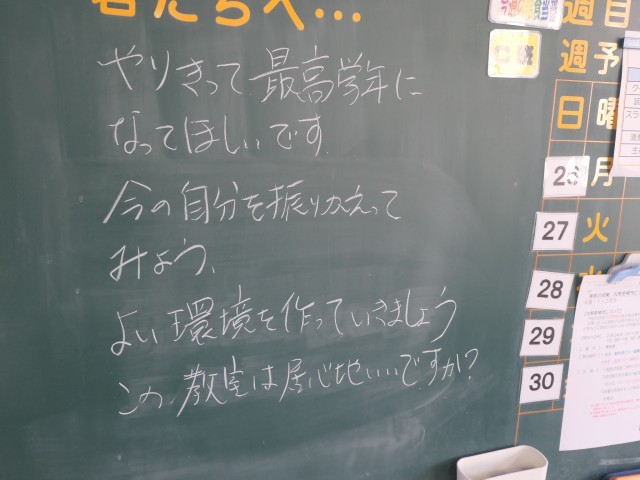 者たちへ…
やりきって最高学年に
なってほしいです
今の自分を振りかえって
みよう、
よい環境を作っていきましょう
この教室は居心地いいですか?
週目
週予
日曜
26 月
27 火
28
29
30